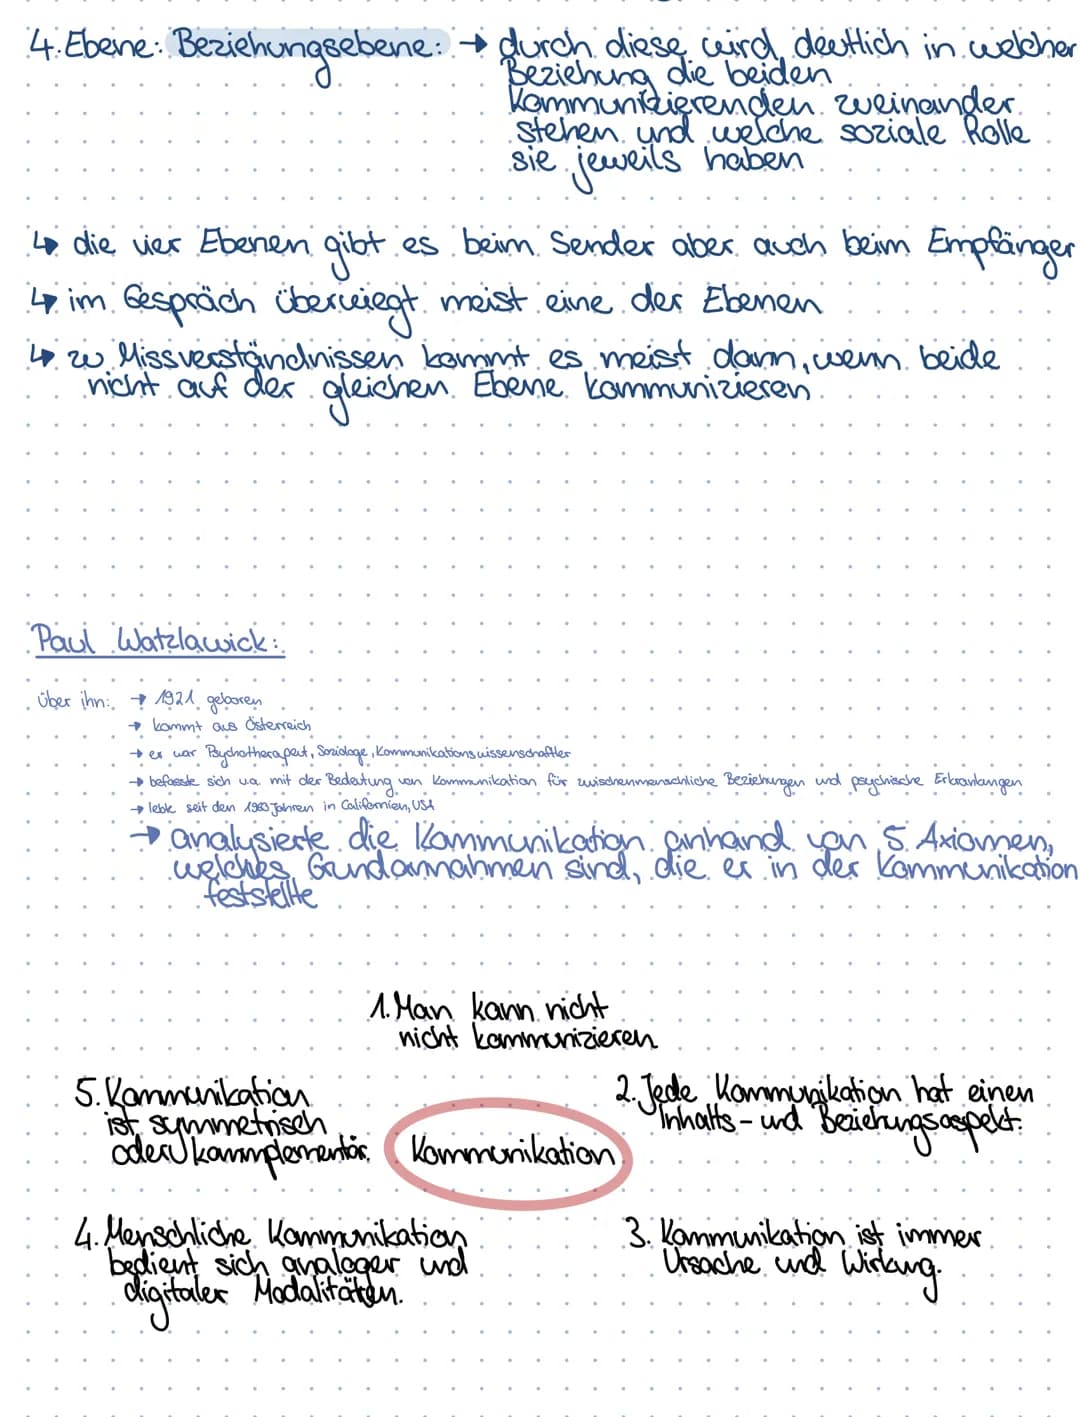 4. Ebene: Beziehungsebene: → durch diese wird deutlich in welcher
Beziehung die beiden
Kommunizierenden zueinander
stehen und welche soziale Rolle
sie jeweils haben
↳ die vier Ebenen gibt es beim Sender aber auch beim Empfänger
↳ im Gespräch überwiegt meist eine der Ebenen
↳ zu Missverständnissen kommt es meist dann, wenn beide
nicht auf der gleichen Ebene kommunizieren
Paul Watzlawick:
über ihn: → 1921 geboren
→ kommt aus Österreich
→ er war Psychotherapeut, Soziologe, Kommunikationswissenschaftler
→ befasste sich u.a. mit der Bedeutung von Kommunikation für zwischenmenschliche Beziehungen und psychische Erkrankungen
→ lebte seit den 1960 Jahren in Californien, USA
→ analysierte die Kommunikation anhand von 5 Axiomen,
welches Grundannahmen sind, die er in der Kommunikation
feststellte
1. Man kann nicht
nicht kommunizieren
2. Jede Kommunikation hat einen
Inhalts- und Beziehungsaspekt.
3. Kommunikation ist immer
Ursache und Wirkung.
4. Menschliche Kommunikation
bedient sich analoger und
digitaler Modalitäten.
5. Kommunikation
ist symmetrisch
oder kommplementär.
Kommunikation